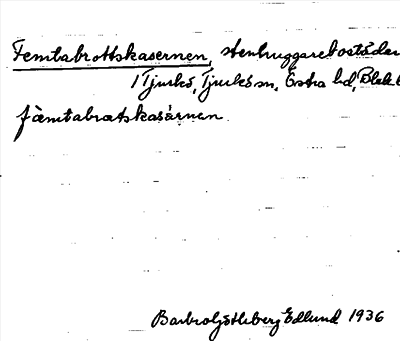 Femtabrottskasernen, stenhuggarebostäder
i Tjurkö, Tjurkö sn, Östra hd, Blek
fämtabråtskasärnen
Barbro Edlund 1936